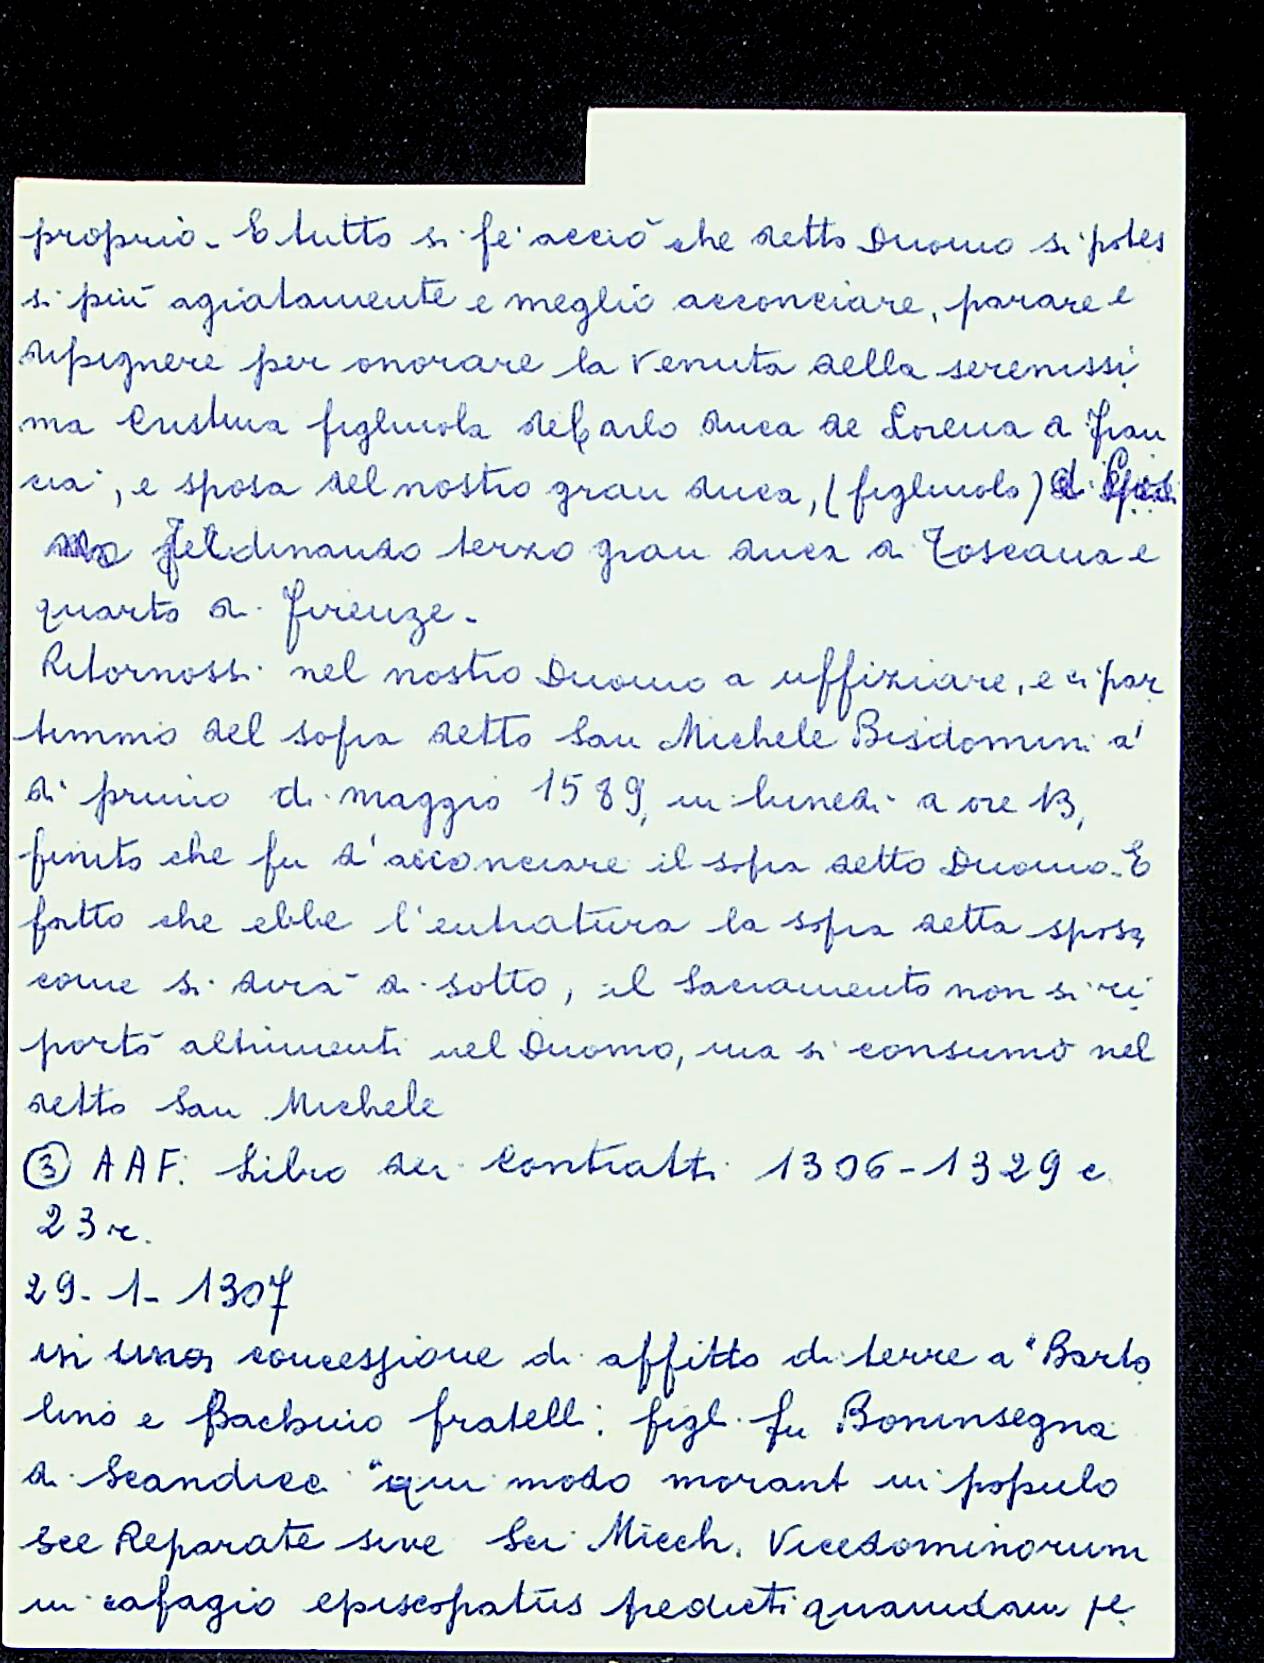 proprio. E tutto si fe' acciò che detto Duomo si potes
si più agiatamente e meglio acconciare, parare e
dipignere per onorare la venuta della serenissi
ma Cristina figliuola de Carlo duca de Lorena di Fran
cia, e sposa del nostro gran duca, (figliuolo) di
Feldinando terzo gran duca di Toscana e
quarto di Firenze.
Ritornossi nel nostro Duomo a uffiziare, e ci par
timmo del sopra detto San Michele Bisdomini a'
dì primo di maggio 1589, in lunedì a ore 13,
finito che fu d'acconciare il sopra detto Duomo. E
fatto che ebbe l'entratura la sopra detta sposa,
come si dirà di sotto, il Sacramento non si ri
portò altrimenti nel Duomo, ma si consumò nel
detto San Michele
③ AAF. Libro dei Contratti 1306-1329 c.
23 r.
29-1-1307
in una concessione di affitto di terre a "Barto
lino e Bachuio fratelli figl. fu Boninsegna
di Scandicci "qui modo morant in populo
Sce Reparate sive Sci Miech. Vicedominorum
in cafagio episcopatus predicti quamdam pe